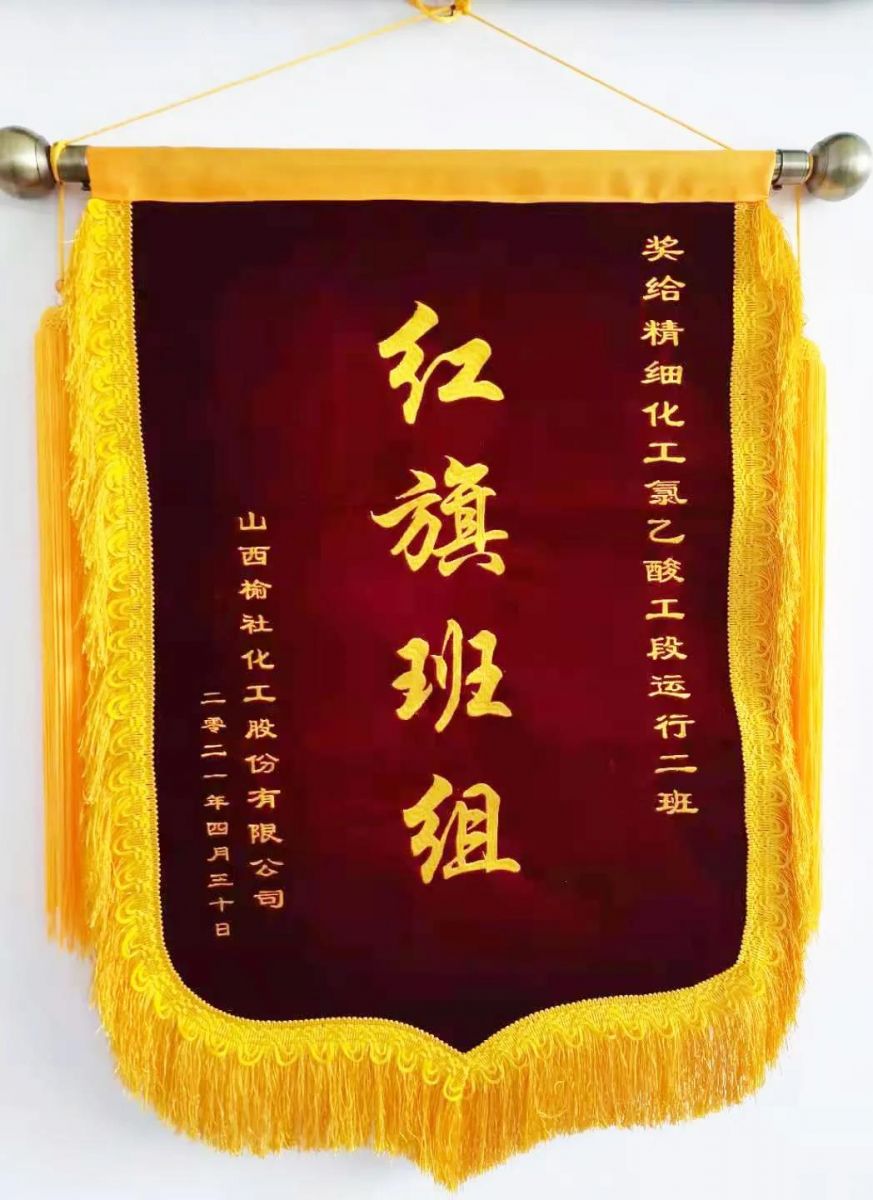 奖给精细化工氯乙酸工段运行二班
红旗班组
山西榆社化工股份有限公司
二零二一年四月三十日